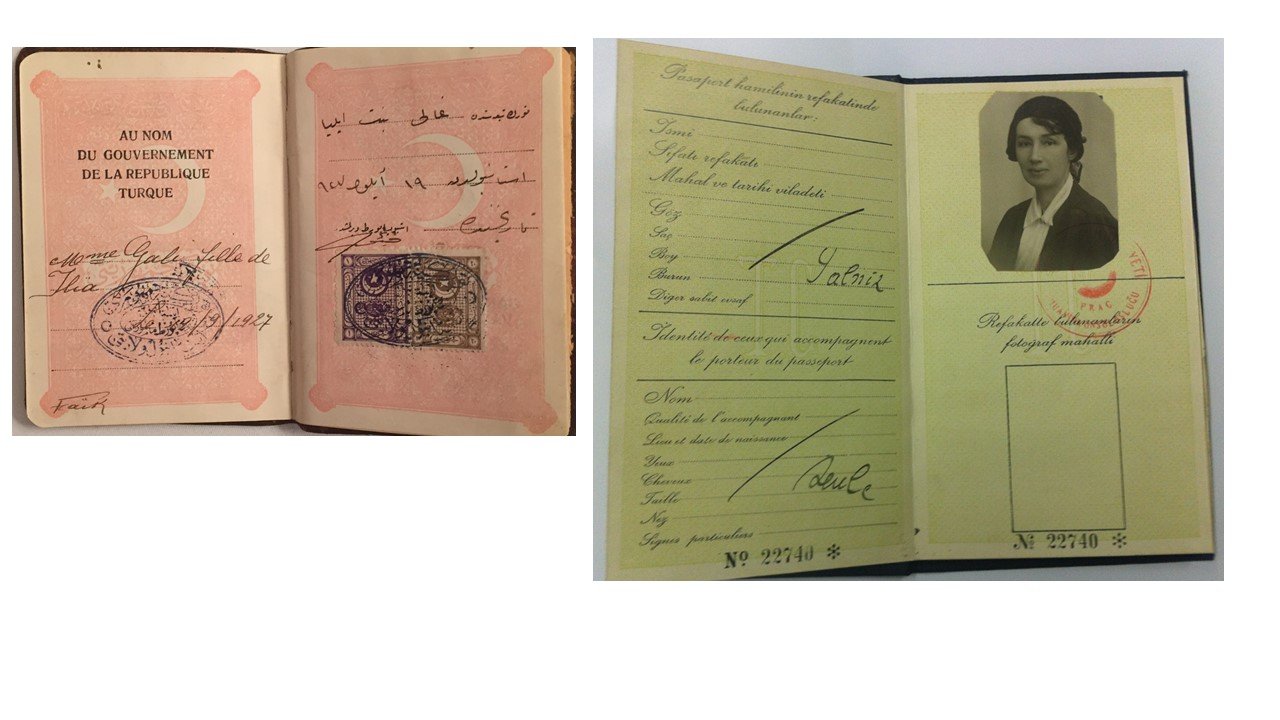 AU NOM
DU GOUVERNEMENT
DE LA REPUBLIQUE
TURQUE
Mme Gali fille de
Ilia
/9/1927
Faik
غالى بنت ايليا
استانبولده ١٩ ايلول ٩٢٧
Pasaport hamilinin refakatinde
bulunanlar:
İsmi
Sıfatı refakati
Mahal ve tarihi viladeti
Göz
Saç
Boy
Burun
Diğer sabit evsaf
Yalnız
Identité de ceux qui accompagnent
le porteur du passeport
Nom
Qualité de l'accompagnant
Lieu et date de naissance
Yeux
Cheveux
Taille
Nez
Signes particuliers
Seule
Nº 22740 *
PRAG
Refakatte bulunanların
fotoğraf mahalli
Nº 22740 *